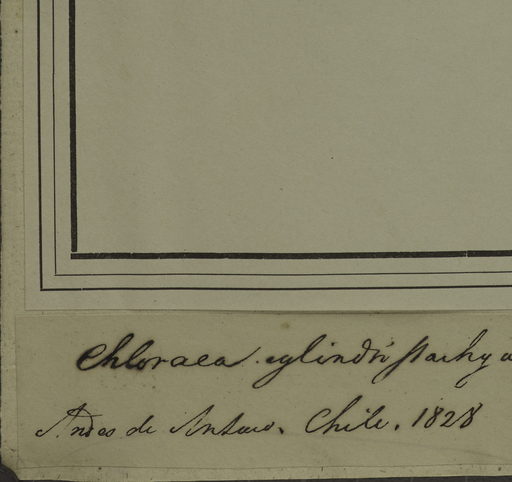 Chloraea cylindristachya
Andes de Antuco. Chile. 1828